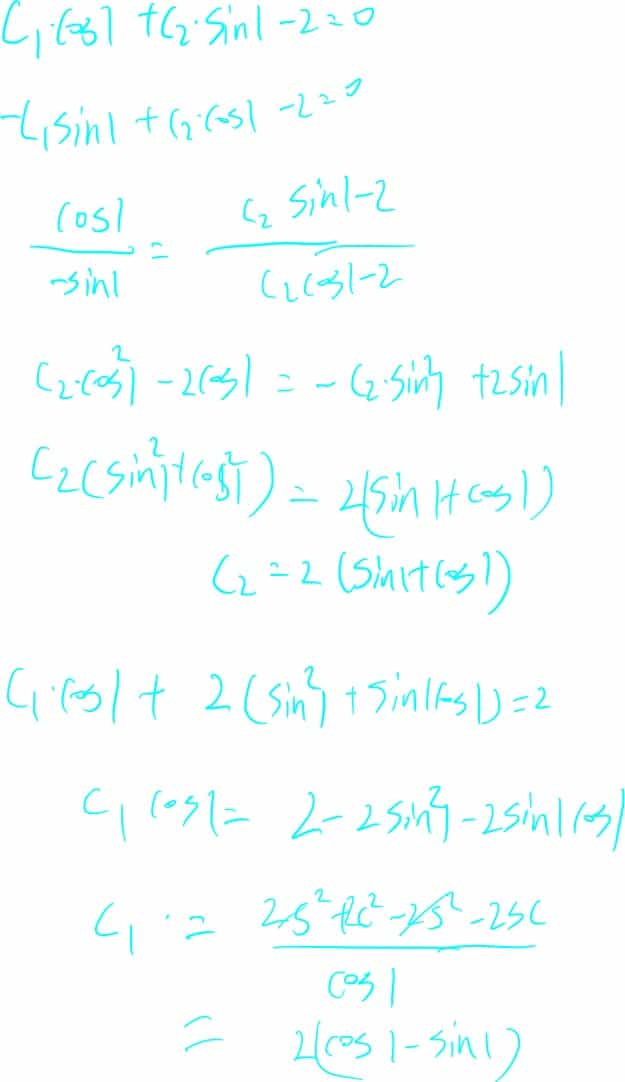 C₁·cos1 + C₂·sin1 - 2 = 0
-C₁sin1 + C₂·cos1 - 2 = 0
cos1 / -sin1 = C₂ sin1 - 2 / C₂cos1 - 2
C₂·cos²1 - 2cos1 = - C₂·sin²1 + 2sin1
C₂(sin²1 + cos²1) = 2(sin1 + cos1)
C₂ = 2(sin1 + cos1)
C₁·cos1 + 2(sin²1 + sin1cos1) = 2
C₁ cos1 = 2 - 2sin²1 - 2sin1cos1
C₁ = 2s² + 2c² - 2s² - 2sc / cos1
= 2(cos1 - sin1)